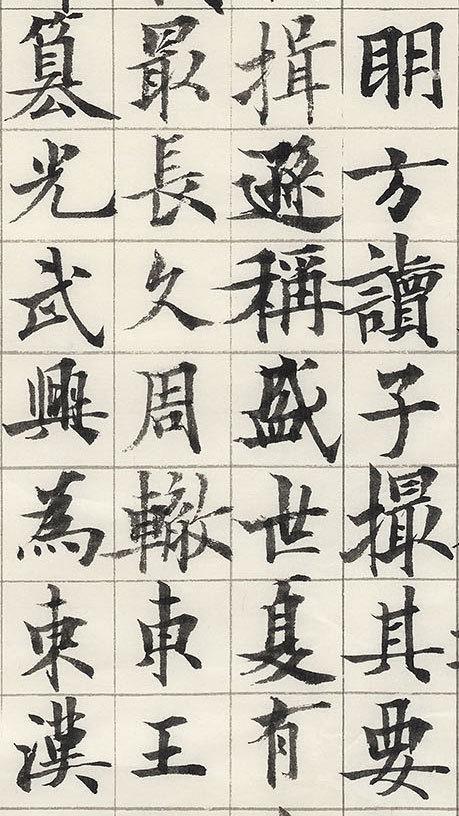 明方讀子撮其要
揖遜稱盛世夏有
最長久周轍東王
篡光武興為東漢